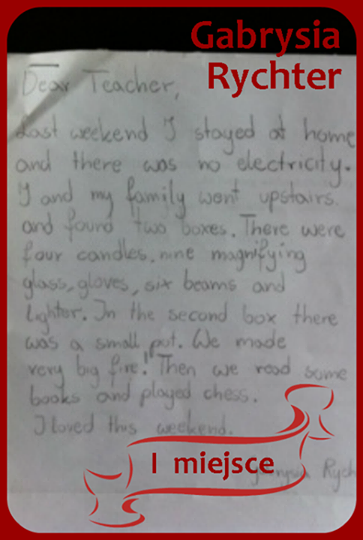 Gabrysia
Rychter
Dear Teacher,
Last weekend I stayed at home
and there was no electricity.
I and my family went upstairs
and found two boxes. There were
four candles, nine magnifying
glass, gloves, six beams and
lighter. In the second box there
was a small pot. We made
very big fire! Then we read some
books and played chess.
I loved this weekend.
I miejsce
Rych